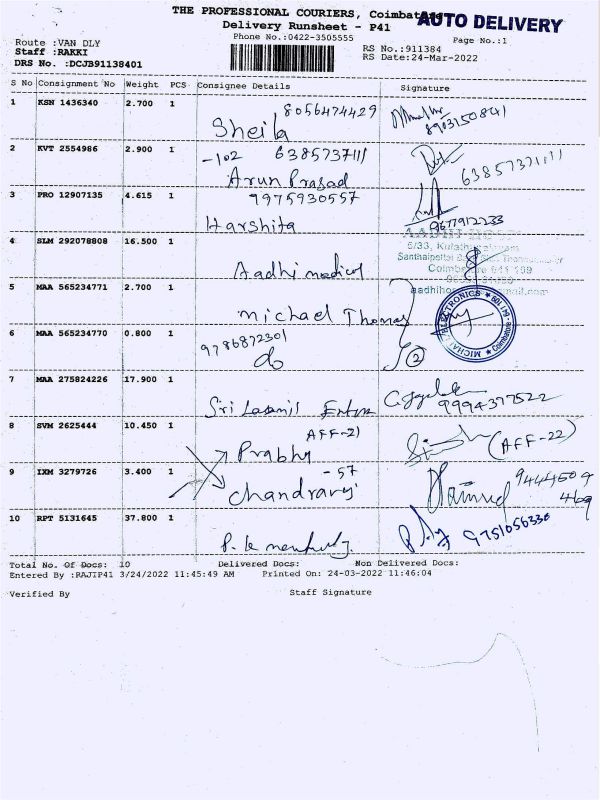 THE PROFESSIONAL COURIERS, Coimbat
AUTO DELIVERY
Delivery Runsheet - P41
Phone No.:0422-3505555
Page No.:1
Route :VAN DLY
Staff :RAKKI
DRS No. :DCJB91138401
RS No.:911384
RS Date:24-Mar-2022
S No Consignment No Weight PCS Consignee Details Signature
1 KSN 1436340 2.700 1 8056474429
Sheila
8903150841
2 KVT 2554986 2.900 1 -102 6385737111
Arun Prasad
3 PRO 12907135 4.615 1 9975930557
Harshita
9677912233
4 SLM 292078808 16.500 1
Aadhi medical
5/33,
Santhaipettai
Coimbatore 641 109
5 MAA 565234771 2.700 1
Michael Thomas
6 MAA 565234770 0.800 1 9786872301
do
2
7 MAA 275824226 17.900 1
Sri
9994377522
8 SVM 2625444 10.450 1 AFF-21
Prabhu
(AFF-22)
9 IXM 3279726 3.400 1 -57
9444509
469
10 RPT 5131645 37.800 1
9751056330
Total No. Of Docs: 10 Delivered Docs: Non Delivered Docs:
Entered By :RAJIP41 3/24/2022 11:45:49 AM Printed On: 24-03-2022 11:46:04
Verified By Staff Signature